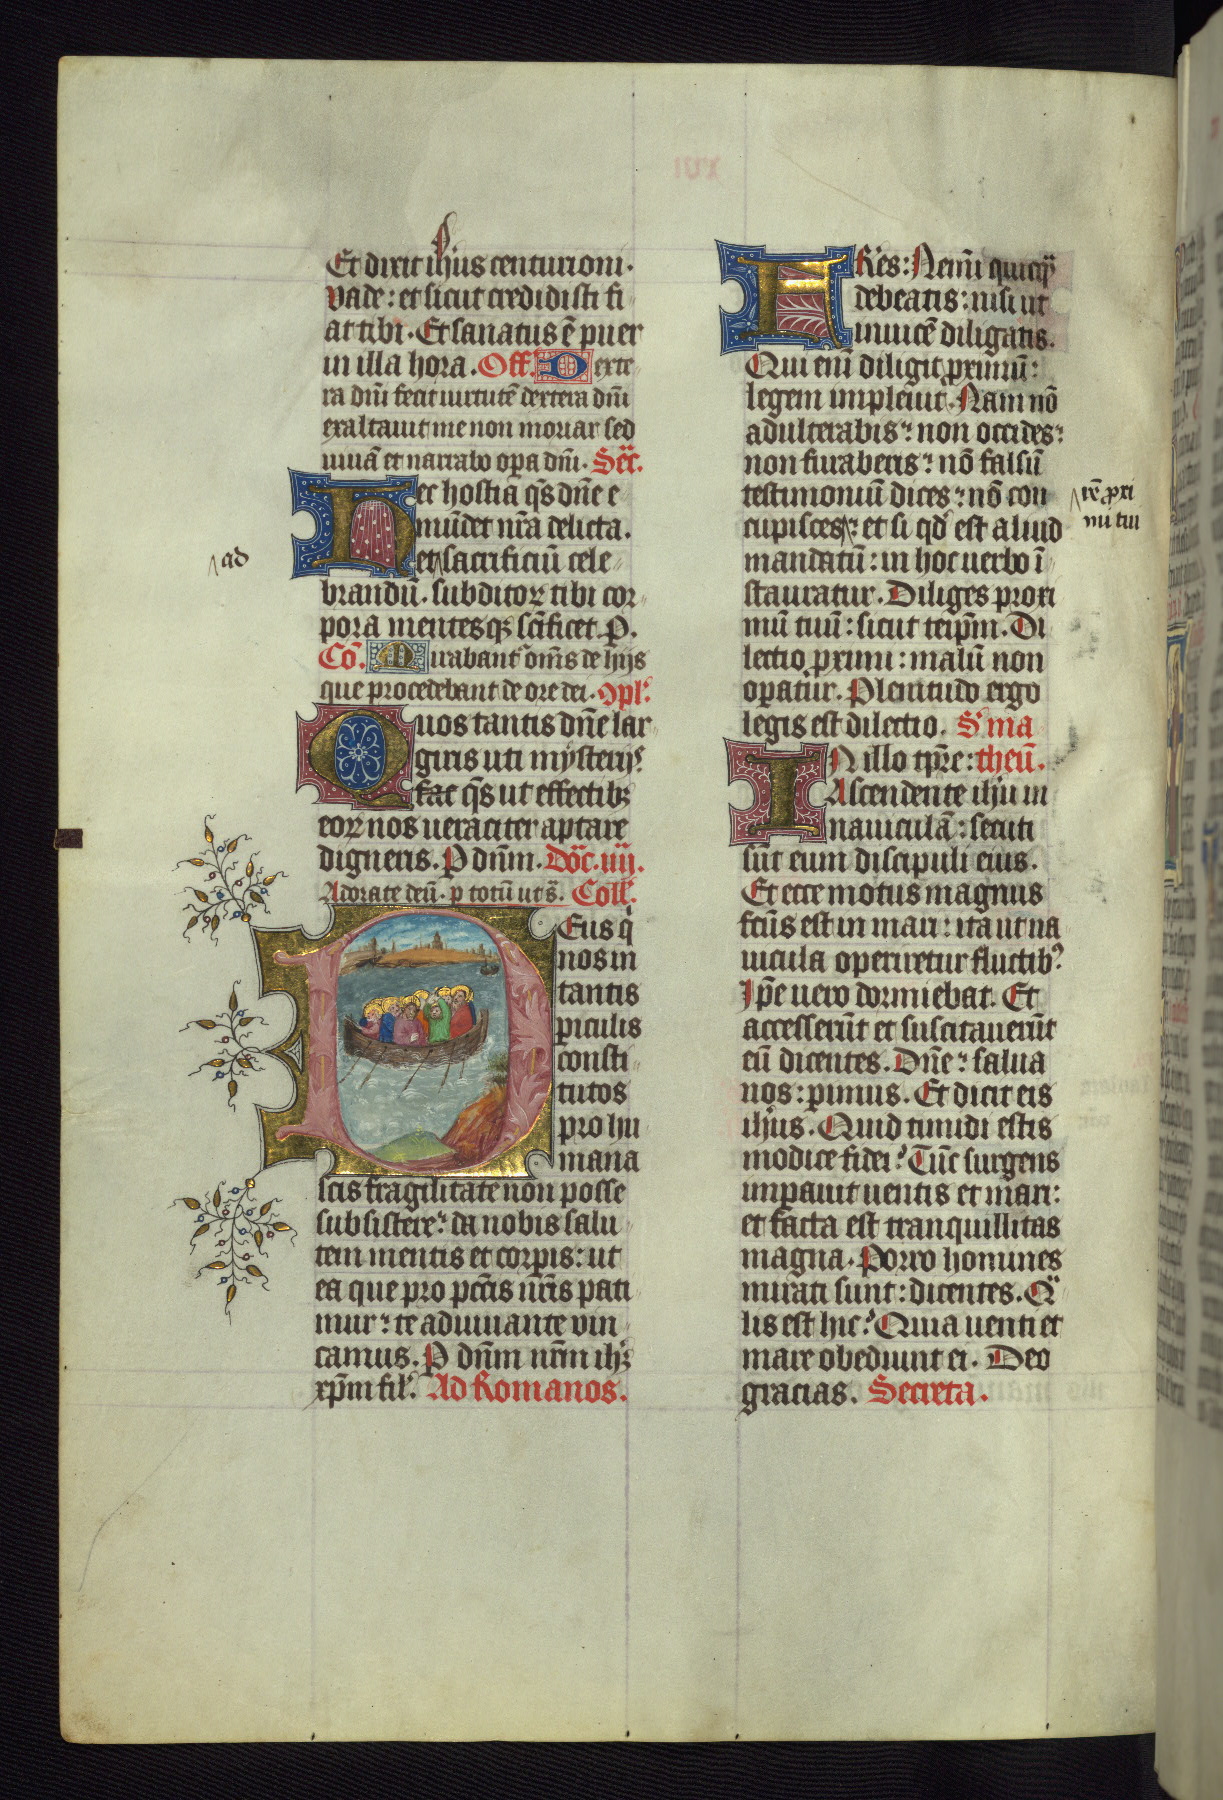 Et dixit ihus centurioni.
vade: et sicut credidisti fi
at tibi. Et sanatus ē puer
in illa hora. Off. Dexte
ra dn̄i fecit uirtutē dextera dn̄i
exaltauit me non moriar sed
uiuā et narrabo opa dn̄i. Sec̄.
Hec hostia q̄s dn̄e e
mūdet nr̄a delicta.
et sacrificiū cele
ad
brandū. subditoꝝ tibi cor
pora mentesqꝫ sc̄ificet. P.
Cō. Mirabant̄ om̄s de hijs
que procedebant de ore dei. ꝯpl.
Quos tantis dn̄e lar
giris uti mysterijs
fac q̄s ut effectibꝫ
eoꝝ nos ueraciter aptare
digneris. P dn̄m. Dōc. iiij.
Adorate deū. p totū ut s̄. Coll.
Deus q̇
nos in
tantis
piculis
consti
tutos
pro hu
mana
scis fragilitate non posse
subsistere: da nobis salu
tem mentis et corpis: ut
ea que pro pctīs nr̄is pati
mur: te adiuuante vin
camus. P dn̄m nr̄m ihꝫ
xp̄m fil. Ad Romanos.
FRēs: Nemī quicq̄
debeatis: nisi ut
inuicē diligatis.
Qui eni̅ diligit proximū:
legem impleuit. Nam nō
adulterabis: non occides:
non furaberis: nō falsū
testimoniū dices: nō con
cupisces: et si qd̄ est aliud
rē proxi
mi tui
mandatū: in hoc uerbo ī
stauratur. Diliges proxi
mū tuū: sicut teip̄m. Di
lectio proximi: malū non
opatur. Plenitudo ergo
legis est dilectio. S. ma
IN illo tp̄re: theū.
Ascendente ihu in
nauiculā: secuti
sūt eum discipuli eius.
Et ecce motus magnus
fc̄us est in mari: ita ut na
uicula operiretur fluctibꝰ
Ip̄e uero dormiebat. Et
accesserūt et suscitauerūt
eū dicentes. Dn̄e: salua
nos: pimus. Et dicit eis
ihus. Quid timidi estis
modice fidei? Tūc surgens
impauit uentis et mari:
et facta est tranquillitas
magna. Porro homines
mirati sunt: dicentes. Qͣ
lis est hic? Quia uenti et
mare obediunt ei. Deo
gracias. Secreta.